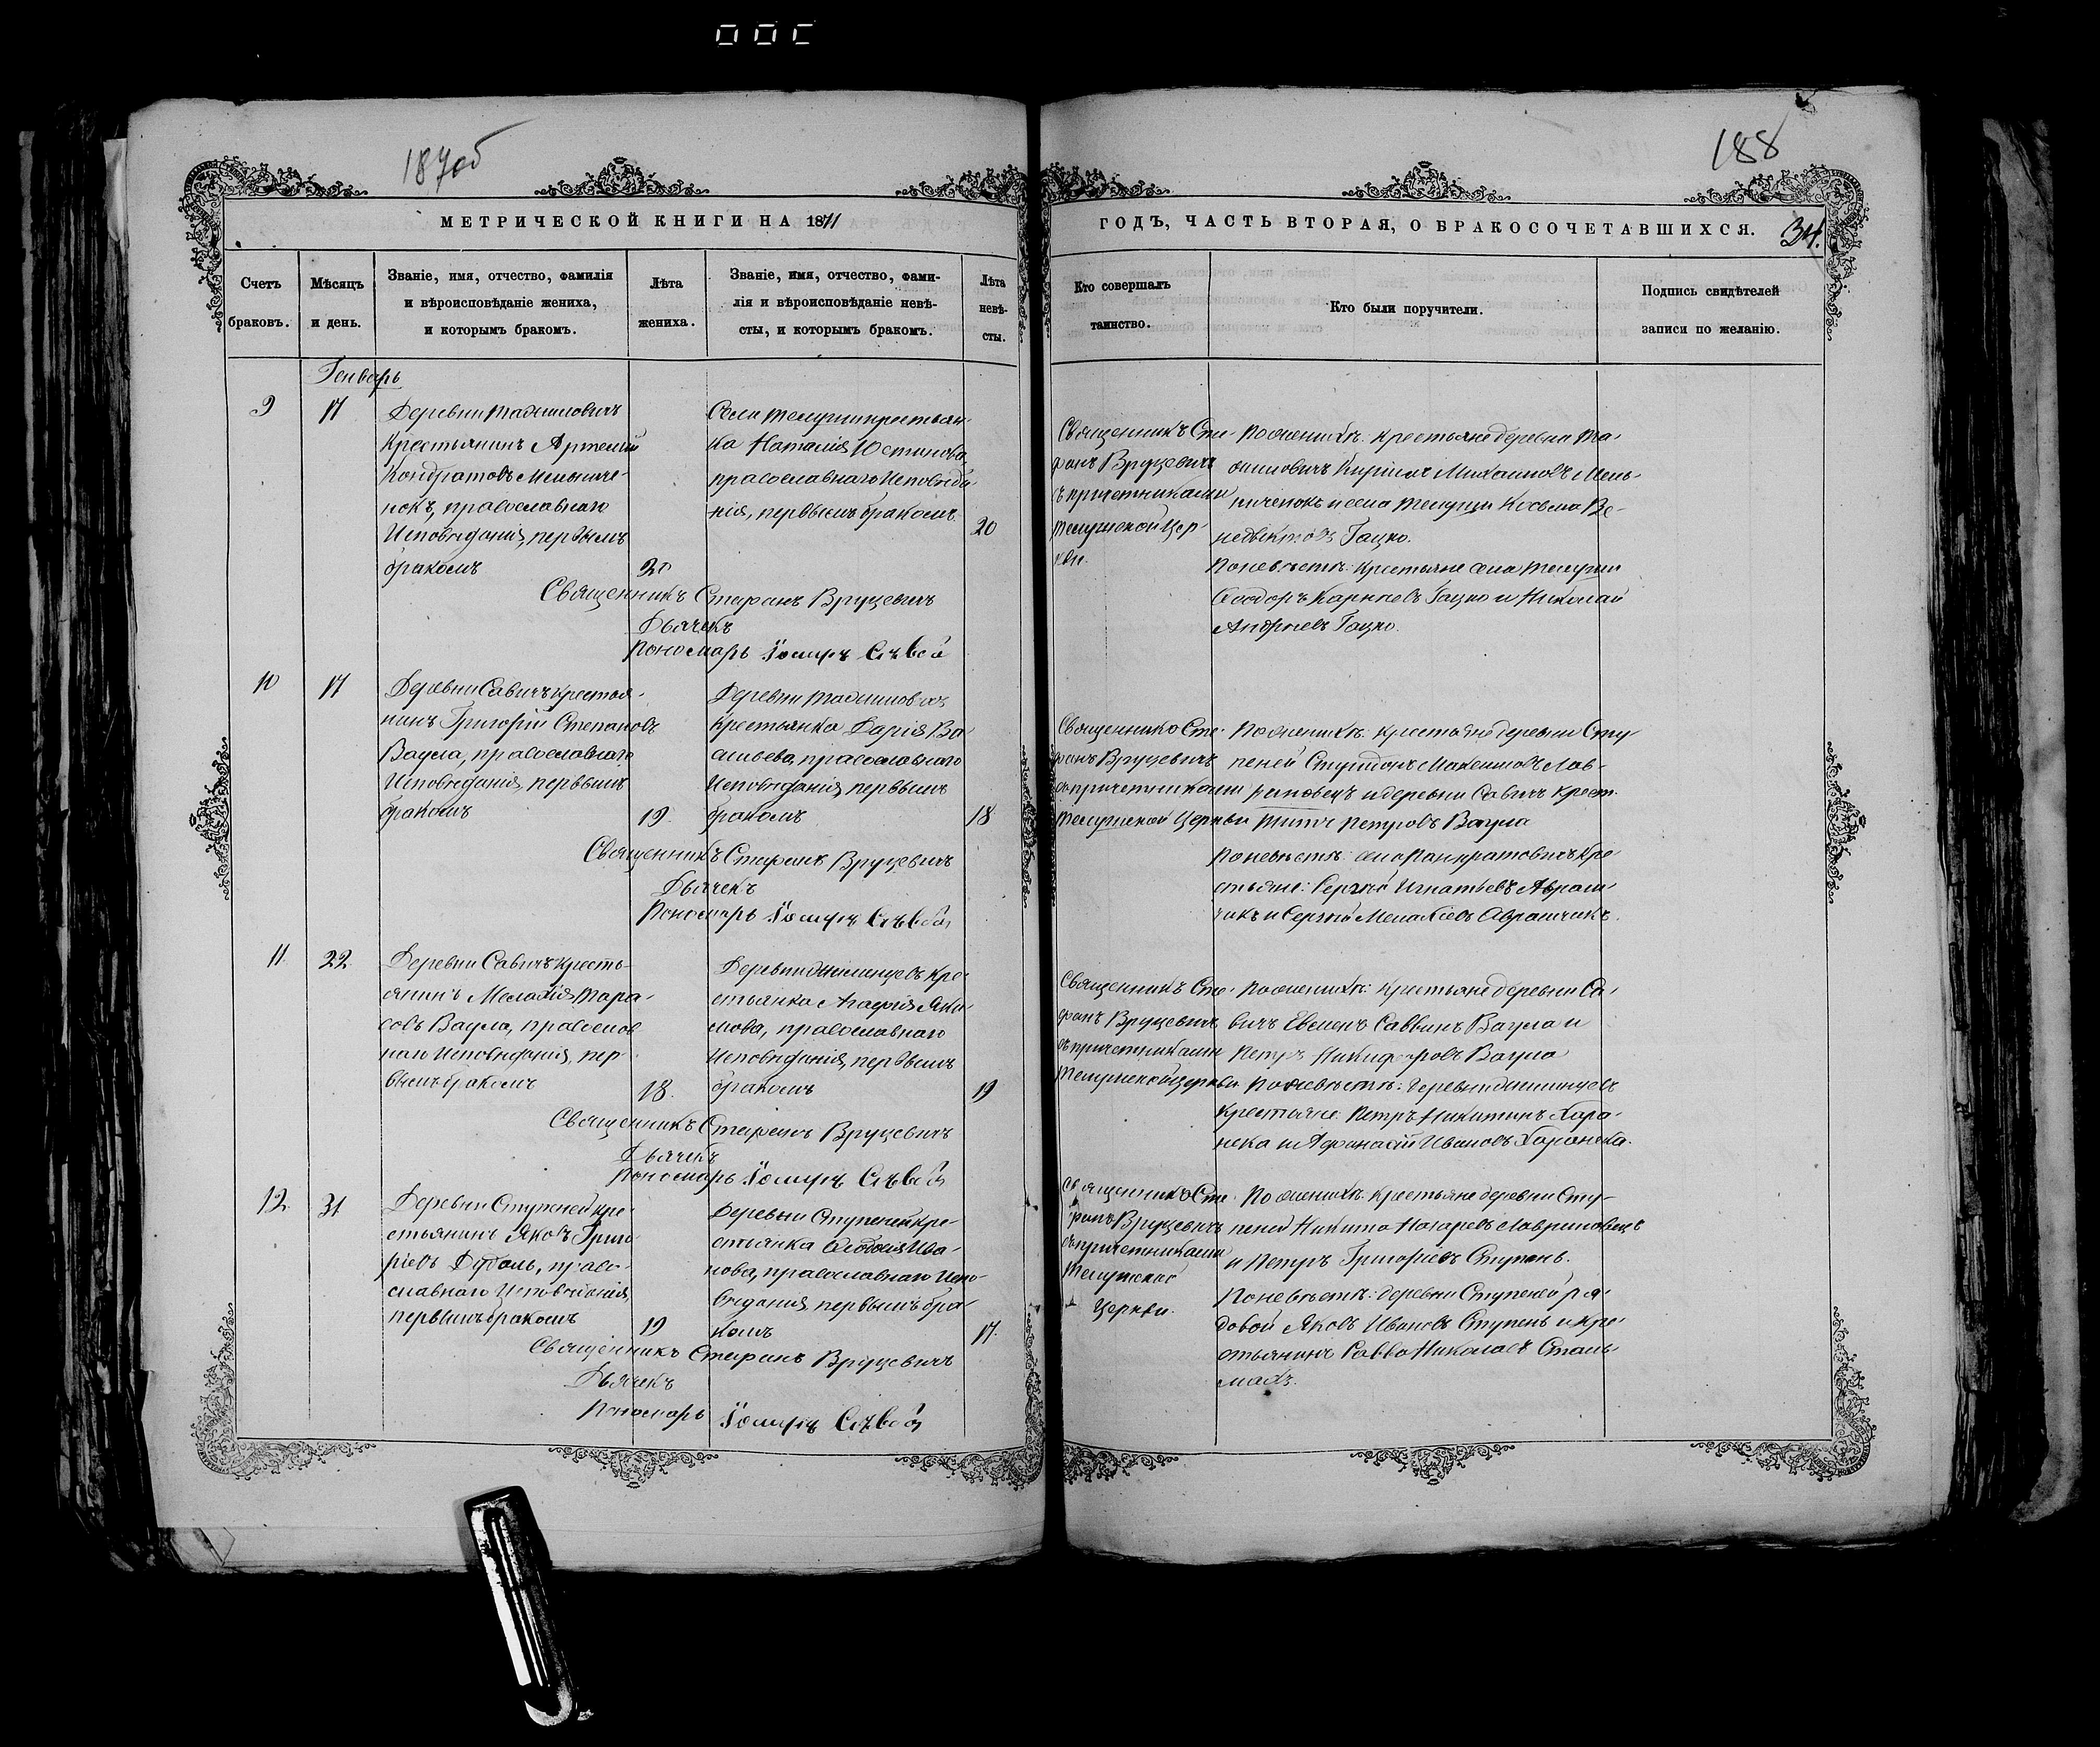 187об
188
МЕТРИЧЕСКОЙ КНИГИ НА 1871
ГОДЪ, ЧАСТЬ ВТОРАЯ, О БРАКОСОЧЕТАВШИХСЯ.
34.
Счетъ
браковъ.
Мѣсяцъ
и день.
Званіе, имя, отчество, фамилія
и вѣроисповѣданіе жениха,
и которымъ бракомъ.
Лѣта
жениха.
Званіе, имя, отчество, фами-
лія и вѣроисповѣданіе невѣ-
сты, и которымъ бракомъ.
Лѣта
невѣ-
сты.
Кто совершалъ
таинство.
Кто были поручители.
Подпись свидѣтелей
записи по желанію.
Генварь
9
17
Деревни
Крестьянинъ Артемій
Кондратовъ
нокъ, православнаго
Исповѣданія, первымъ
бракомъ
Села Телуши крестьян-
ка Наталія Юстинова,
православнаго Исповѣда-
нія, первымъ бракомъ.
20
Священникъ Сте-
фанъ Вруцевичъ
съ причетниками
Телушской Цер-
кви.
По женихѣ: крестьяне деревни
Михаиловъ
и села Телуши Косьма Ве-
недиктовъ Гацко.
По невѣстѣ: Крестьяне села Телуши
Ѳеодоръ Карповъ Гацко и Николай
Андреевъ Гацко.
Священникъ Стефанъ Вруцевичъ
Дьячекъ
Пономарь
10
17
Деревни Савичъ крестья-
нинъ Григорій Степановъ
Ваула, православнаго
Исповѣданія, первымъ
бракомъ
19.
Деревни
Крестьянка Дарія Ва-
сильева, православнаго
Исповѣданія, первымъ
бракомъ
18
Священникъ Сте-
фанъ Вруцевичъ
съ причетниками
Телушской Церкви
По женихѣ: крестьяне деревни Сту-
пеней Спиридонъ Максимовъ Лав-
риновецъ и деревни Савичъ крест.
Титъ Петровъ Ваула
По невѣстѣ: села Панкратовичъ кре-
стьяне: Сергѣй Игнатьевъ Аврам-
чикъ и Сергѣй Аврамчикъ.
Священникъ Стефанъ Вруцевичъ
Дьячекъ
Пономарь
11.
22.
Деревни Савичъ кресть-
янинъ Тара-
совъ Ваула, православ
наго Исповѣданія, пер-
вымъ бракомъ
18.
Деревни кре-
стьянка Агафія Яки-
мова, православнаго
Исповѣданія, первымъ
бракомъ
19
Священникъ Сте-
фанъ Вруцевичъ
съ причетниками
Телушской церкви
По женихѣ: крестьяне деревни Са-
вичъ Евменъ Саввинъ Ваула и
Петръ Никифоровъ Ваула
По невѣстѣ: деревни
Крестьяне: Петръ Никитинъ Хара-
нека и Афанасій Ивановъ Харанека.
Священникъ Стефанъ Вруцевичъ
Дьячекъ
Пономарь
12.
31
Деревни Ступеней кре-
стьянинъ Яковъ Григо-
ріевъ право-
славнаго Исповѣданія,
первымъ бракомъ
19
Деревни Ступеней кре-
стьянка Ѳеодосія Ива-
нова, православнаго Испо-
вѣданія, первымъ бра-
комъ
17.
Священникъ Сте-
фанъ Вруцевичъ
съ причетниками
Телушской
Церкви.
По женихѣ: Крестьяне деревни Сту-
пеней Никита Назаревъ Лавриновецъ
и Петръ Григоріевъ Ступень.
По невѣстѣ: деревни Ступеней ря-
довой Яковъ Ивановъ Ступень и кре-
стьянинъ Савва Николаевъ Сталь-
махъ.
Священникъ Стефанъ Вруцевичъ
Дьячекъ
Пономарь